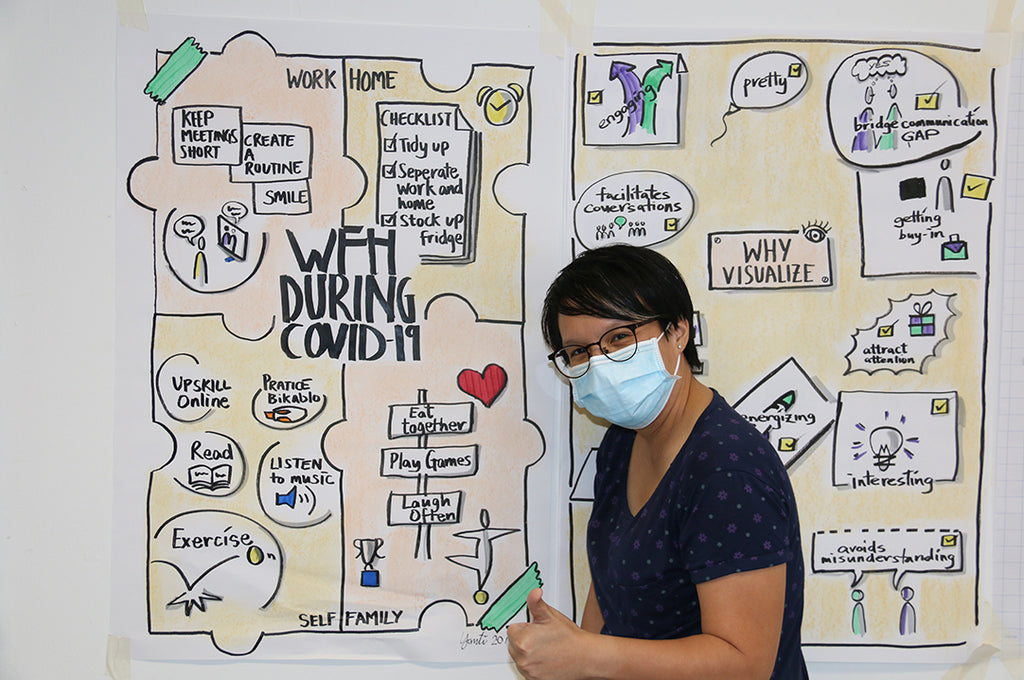 WORK HOME
KEEP
MEETINGS
SHORT
CREATE
A
ROUTINE
SMILE
CHECKLIST
Tidy up
Seperate
work and
home
Stock up
fridge
WFH
DURING
COVID-19
UPSKILL
Online
PRATICE
Bikablo
Read
LISTEN
to music
Exercise
Eat
together
Play Games
Laugh
Often
SELF-FAMILY
engaging
pretty
YES
bridge communication
GAP
facilitates
coversations
WHY
VISUALIZE
getting
buy-in
attract
attention
energizing
interesting
avoids
misunderstanding